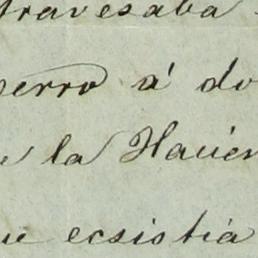 travesaba
perro á do
la Hacien
ue ecsistia